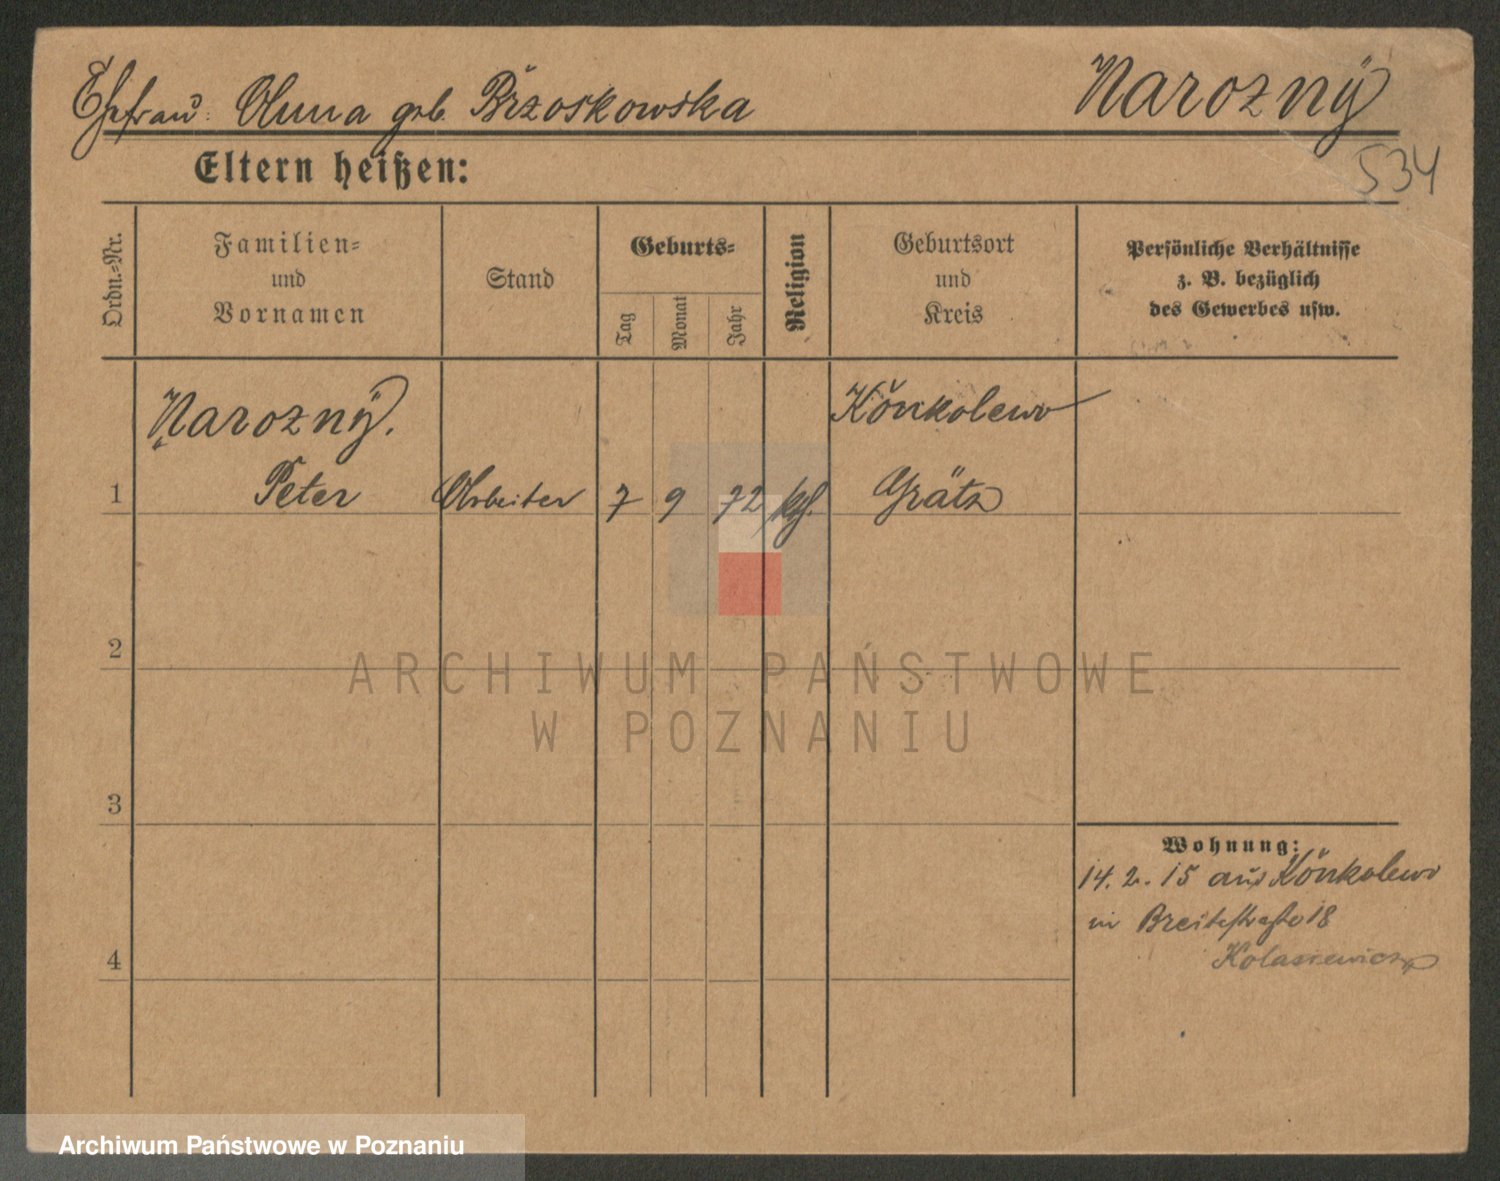 Ehefrau: Anna geb. Brzoskowska
Narozny
534
Eltern heißen:
Ordn.-Nr.
Familien-
und
Vornamen
Stand
Geburts-
Tag
Monat
Jahr
Religion
Geburtsort
und
Kreis
Persönliche Verhältnisse
z. B. bezüglich
des Gewerbes usw.
Narozny.
Könkolewo
1 Peter Arbeiter 7 9 72 ktl. Grätz
2
ARCHIWUM PAŃSTWOWE
W POZNANIU
3
Wohnung:
14. 2. 15 aus Könkolewo
in Breitestraße 18
Kolasiewicz
4
Archiwum Państwowe w Poznaniu